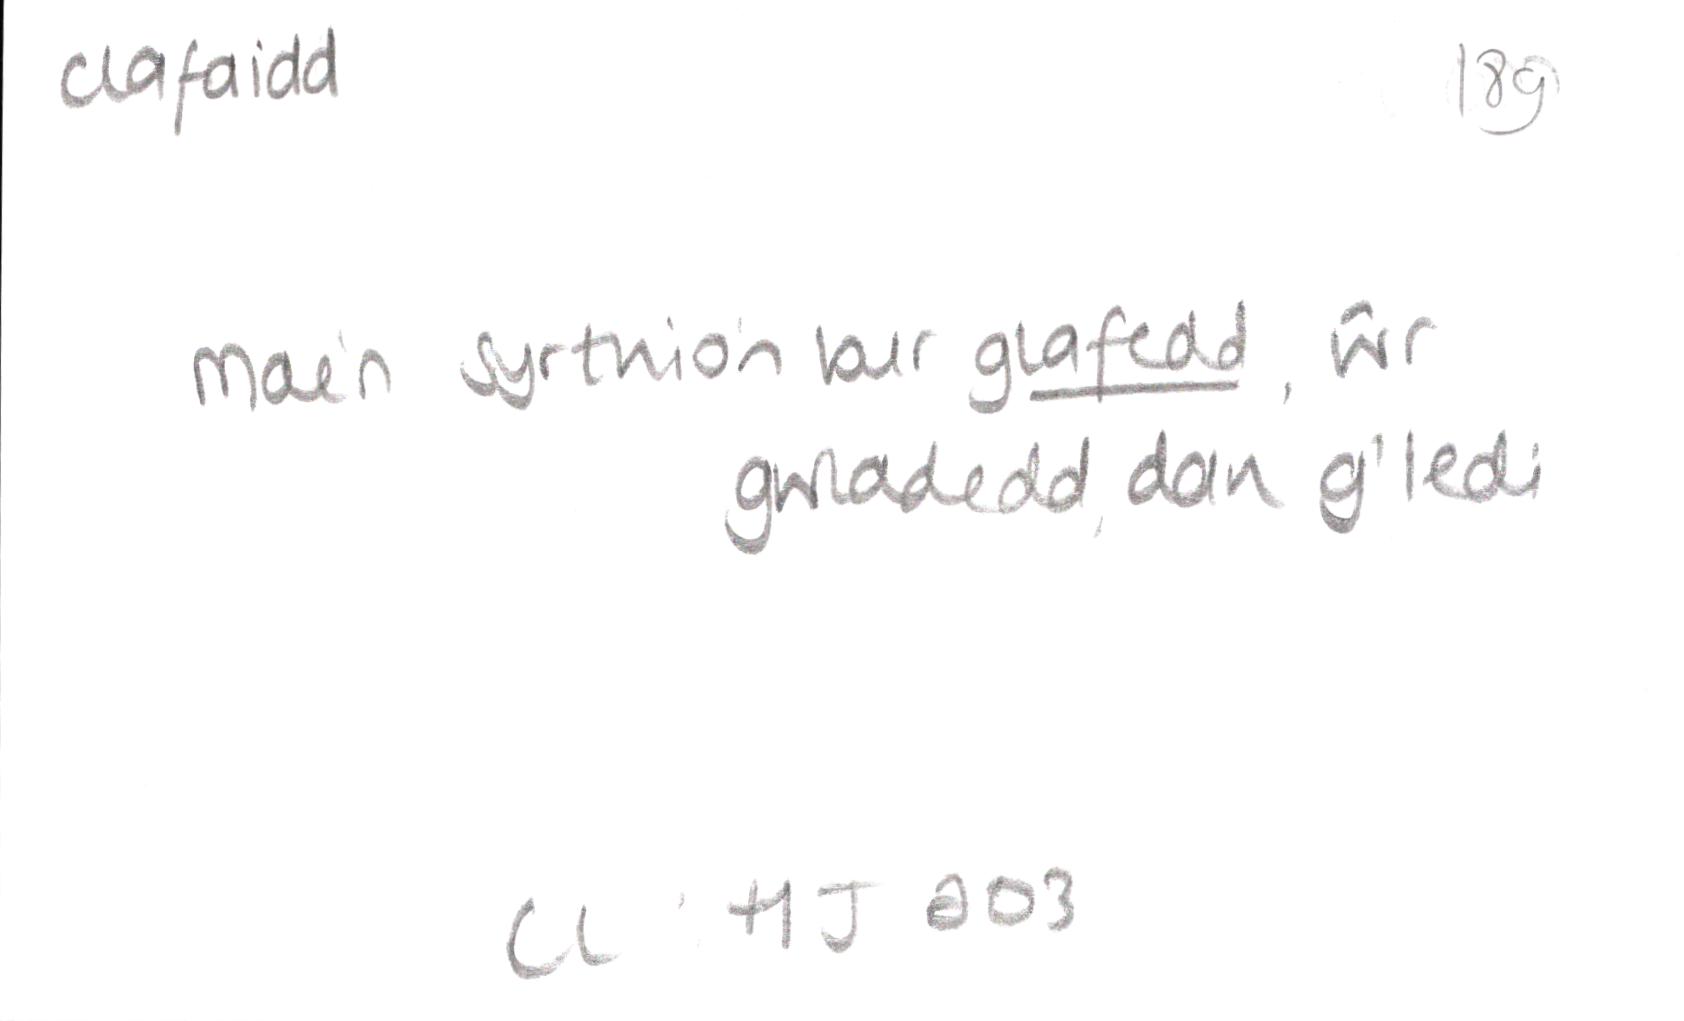 clafaidd
189
mae'n syrthio'n lwr glafedd, ŵr
gwladedd, dan g'ledi
CL : HJ 203